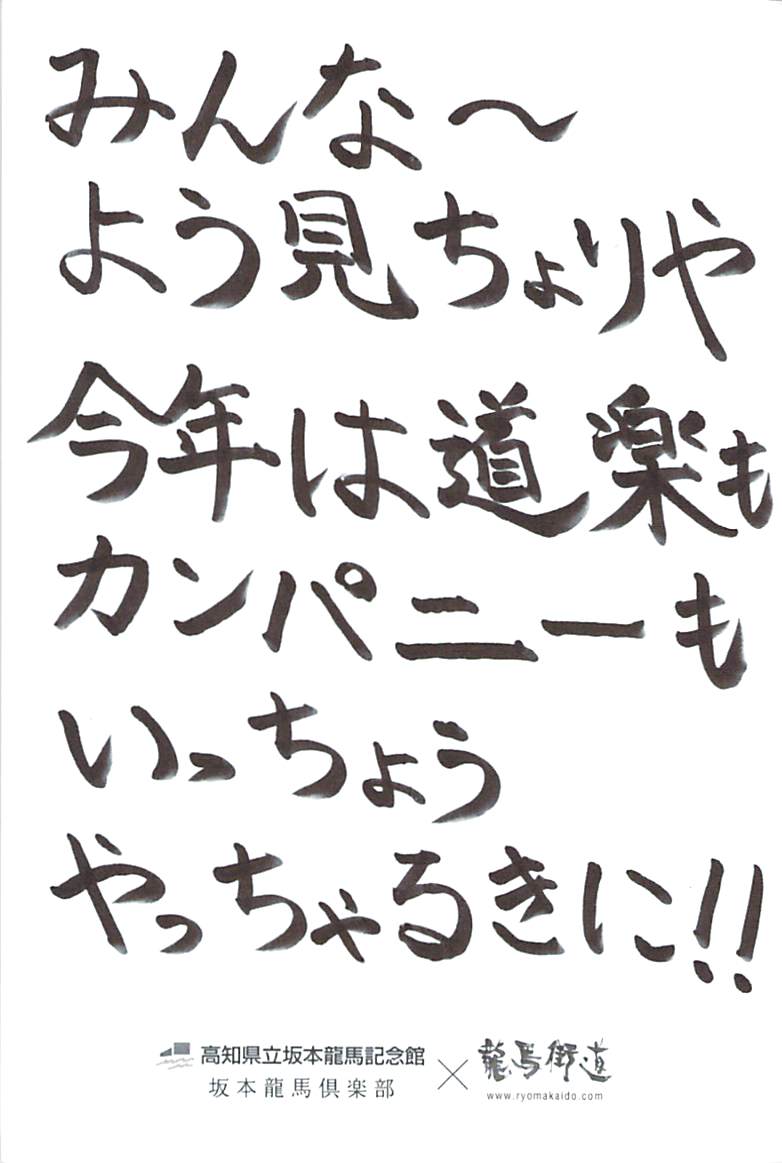 みんな〜
よう見ちょりや
今年は道楽も
カンパニーも
いっちょう
やっちゃるきに!!
高知県立坂本龍馬記念館
坂本龍馬倶楽部
×
龍馬街道
www.ryomakaido.com